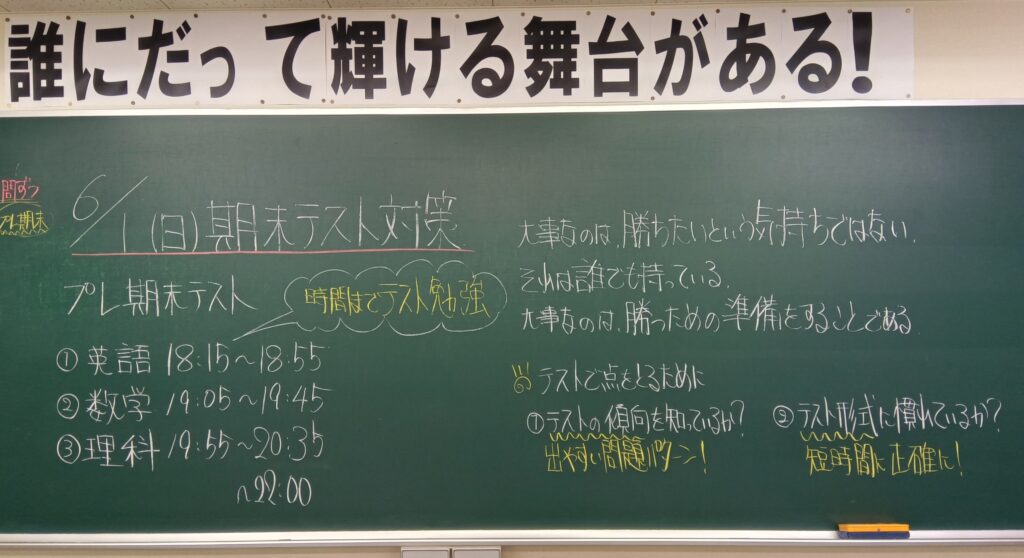 誰にだって輝ける舞台がある!
問ずつ
プレ期末
6/1(日)期末テスト対策
プレ期末テスト
時間までテスト勉強
①英語 18:15~18:55
②数学 19:05~19:45
③理科 19:55~20:35
~22:00
大事なのは、勝ちたいという気持ちではない。
それは誰でも持っている。
大事なのは、勝つための準備をすることである。
テストで点をとるために
①テストの傾向を知っているか?
出やすい問題パターン!
②テスト形式に慣れているか?
短時間に正確に!